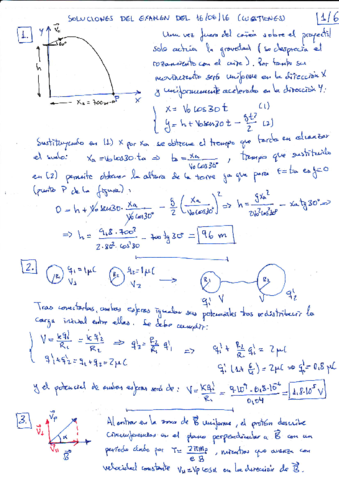 SOLUCIONES DEL EXAMEN DEL 16/06/16 (CUESTIONES) 1/6
1. Una vez fuera del cañón sobre el proyectil
solo actúa la gravedad (se desprecia el
rozamiento con el aire). Por tanto su
movimiento será uniforme en la dirección X
y uniformemente acelerado en la dirección Y:
Y V₀ 30° h X_A = 700 m P X
{ x = V₀ cos30 t (1)
y = h + V₀ sen30 t − gt²/2 (2)
Sustituyendo en (1) x por x_A se obtiene el tiempo que tarda en alcanzar
el suelo: x_A = V₀ cos30·t_A ⇒ t_A = x_A/(V₀ cos30), tiempo que sustituido
en (2) permite obtener la altura de la torre ya que para t = t_A es y=0
(punto P de la figura):
0 = h + V₀ sen30 · x_A/(V₀ cos30) − g/2 (x_A/(V₀ cos30))² ⇒ h = g x_A²/(2V₀² cos²30) − x_A tg30° ⇒
⇒ h = 9,8·700²/(2·80² cos²30) − 700 tg30° = 96 m
2. R₁ q₁ = 1μC V₁ R₂ q₂ = 1μC V₂ R₁ q₁' V R₂ q₂' V
Tras conectarlas, ambas esferas igualan sus potenciales tras redistribuir la
carga inicial entre ellas. Se debe cumplir:
{ V = k q₁'/R₁ = k q₂'/R₂ ⇒ q₂' = R₂/R₁ q₁' ⇒ q₁' + R₂/R₁ q₁' = 2μC
q₁' + q₂' = q₁ + q₂ = 2μC q₁' (1 + 6/4) = 2μC ⇒ q₁' = 0,8μC
y el potencial de ambas esferas será de: V = k q₁'/R₁ = 9·10⁹ · 0,8·10⁻⁶/0,04 = 1,8·10⁵ V
3. Al entrar en la zona de B⃗ uniforme, el protón describe
circunferencias en el plano perpendicular a B⃗ con un
período dado por T = 2πm_p/(e B), mientras que avanza con
velocidad constante V_∥ = V_p cosα en la dirección de B⃗.
V⃗_⊥ V⃗_p α V⃗_∥ B⃗